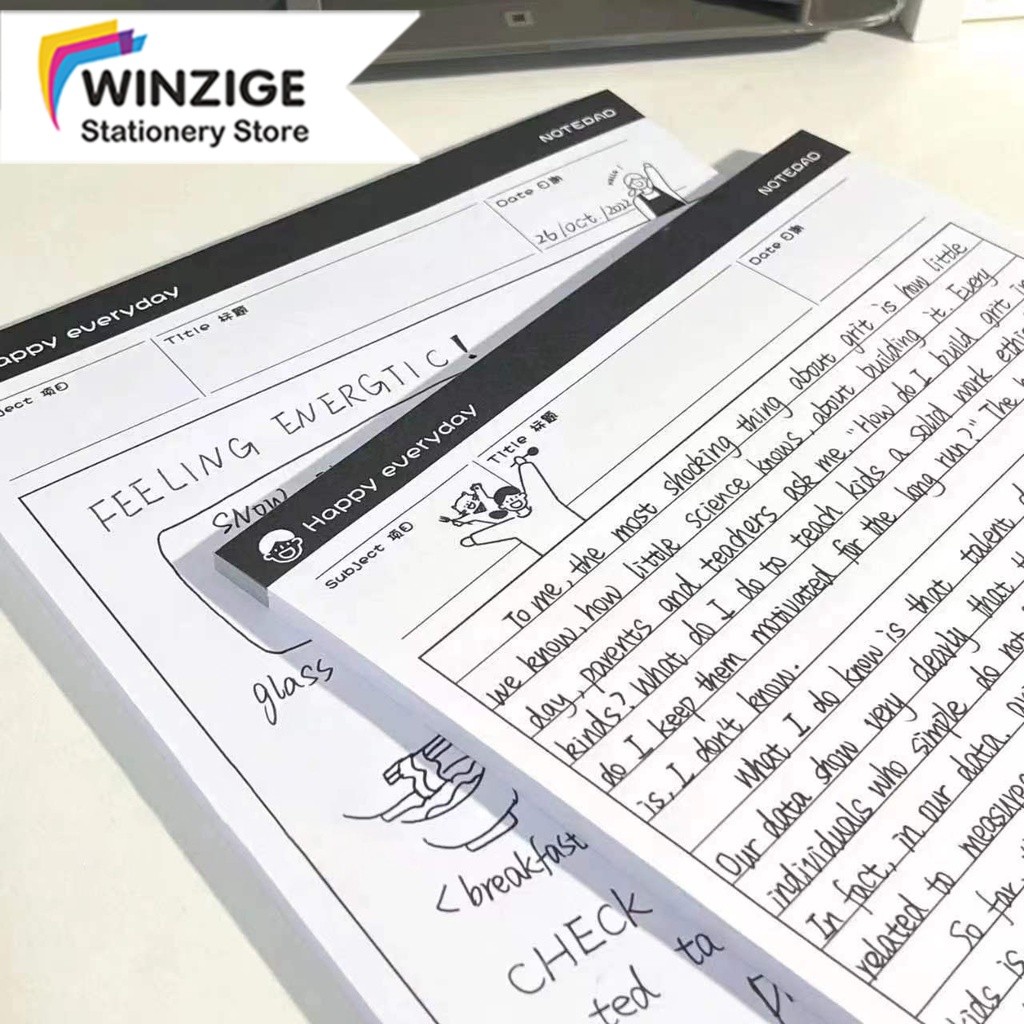 WINZIGE
Stationery Store
NOTEPAD
Happy everyday
Subject 项目
Title 标题
Date 日期
26/Oct./2022
HELLO!
FEELING ENERGTIC!
SNOW
glass
< breakfast
CHECK
ted ta
D.
NOTEPAD
Happy everyday
Subject 项目
Title 标题
Date 日期
To me, the most shocking thing about grit is how little
we know, how little science knows, about building it. Every
day, parents and teachers ask me. "How do I build grit in
kinds? What do I do to teach kids a solid work ethic
do I keep them motivated for the long run?" The
is, I don't know.
What I do know is that talent
Our data show very clearly that
individuals who simple do not
In fact, in our data,
related to measures
So far
kids is